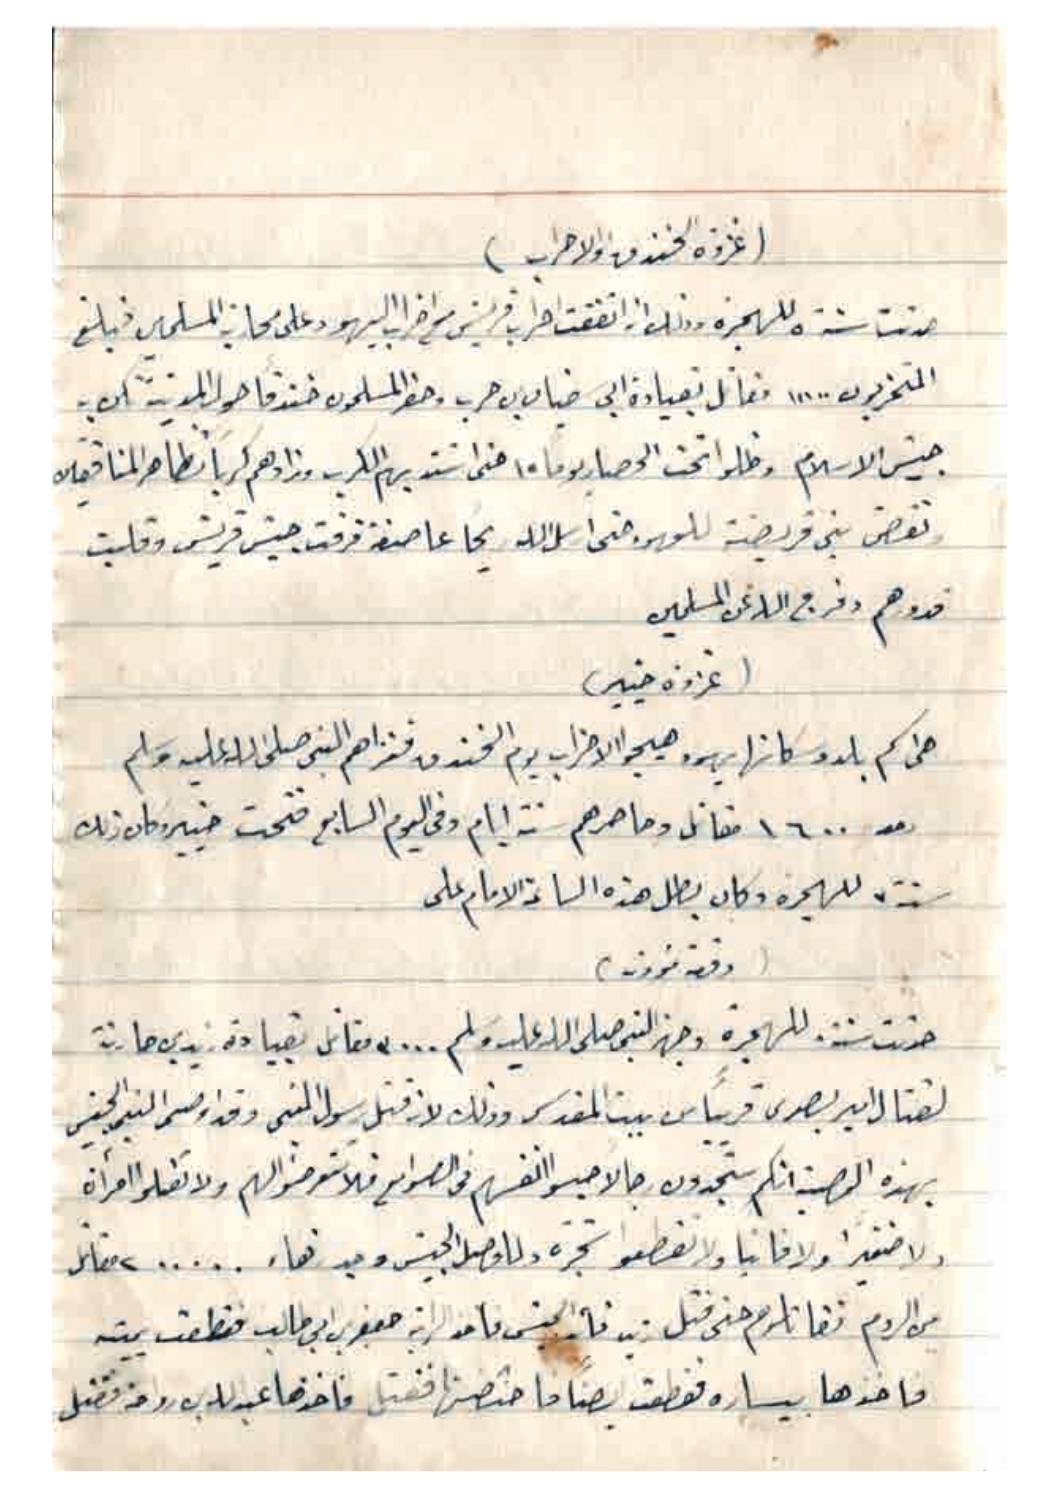 (غزوة الخندق او الاحزاب)
حدثت سنة ٥ للهجرة وذلك انه اتفقت احزاب قريش مع احزاب اليهود على محاربة المسلمين فبلغ
المتحزبون ١٠٠٠٠ مقاتل بقيادة ابي سفيان بن حرب وحفر المسلمون خندقاً حول المدينة
جيش الاسلام وظلوا تحت الحصار يوماً ١٥ حتى اشتد بهم الكرب وزادهم كرباً تظاهر المنافقين
ونقض بني قريضة للعهود حتى ارسل الله ريحا عاصفة فرقت جيش قريش وقلبت
قدورهم وفرج الله عن المسلمين
(غزوة خيبر)
بلد وسكانها يهود هيجوا الاحزاب يوم الخندق فغزاهم النبي صلى الله عليه وسلم
١٦٠٠ مقاتل وحاصرهم ستة ايام وفي اليوم السابع فتحت خيبر وكان ذلك
سنة ٧ للهجرة وكان بطل هذه الساعة الامام علي
(وقعة مؤوته)
حدثت سنة للهجرة وجهز النبي صلى الله عليه وسلم ٣٠٠٠ مقاتل بقيادة زيد بن حارثة
لقتال امير بصرى قريباً من بيت المقدس وذلك لانه قتل رسول النبي وقد اوصى النبي الجيش
بهذه الوصية انكم ستجدون رجالاً حبسوا انفسهم في الصوامع فلا تتعرضوا لهم ولا تقتلوا امرأة
ولا صغيراً ولا فانيا ولا تقطعوا شجرة ولما وصل الجيش وجد زهاء ٢٠٠٠٠٠ مقاتل
من الروم فقاتلوهم حتى قتل زيد قائد الجيش فاخذ الراية جعفر بن ابي طالب فقطعت يمينه
فاخذها بيساره فقطعت ايضاً فاحتضنها فقتل فاخذها عبدالله بن رواحة فقتل